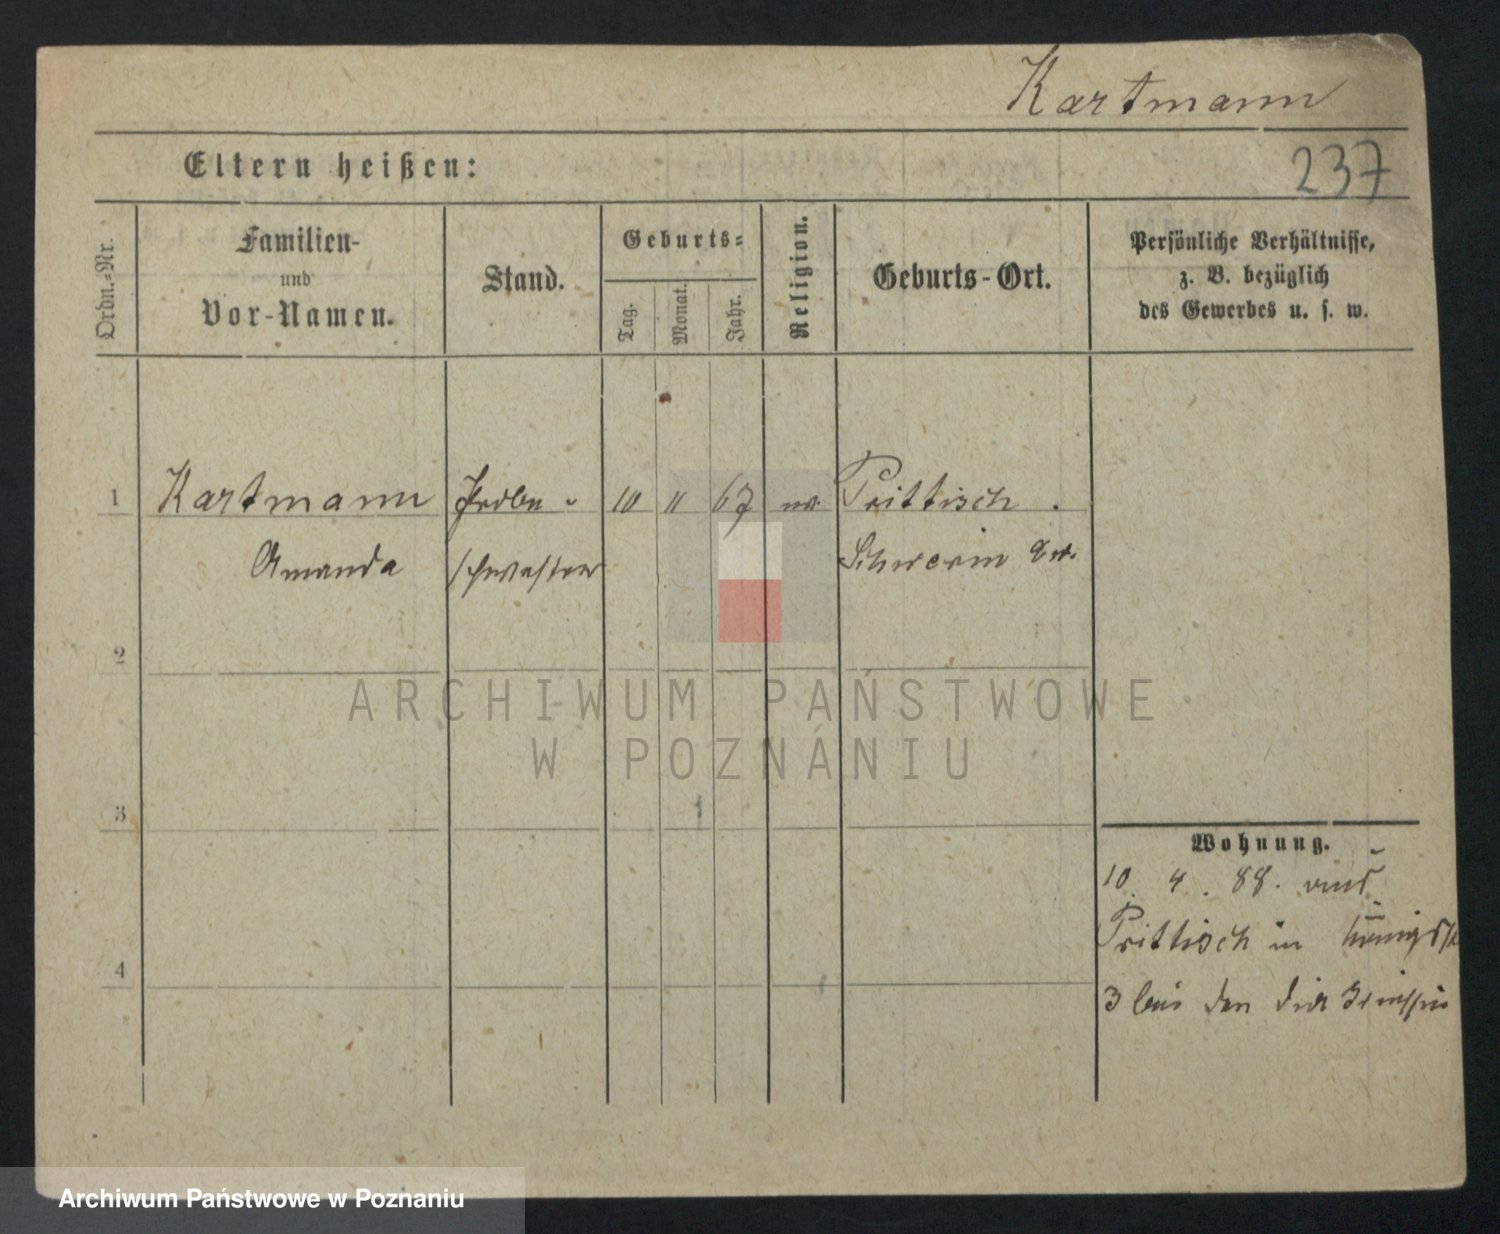 Kartmann
237
Eltern heißen:
Ordn.-Nr.
Familien-
und
Vor-Namen.
Stand.
Geburts-
Tag.
Monat.
Jahr.
Religion.
Geburts-Ort.
Persönliche Verhältnisse,
z. B. bezüglich
des Gewerbes u. s. w.
1 Kartmann Probe- 10 11 67 Prittisch.
Amanda schwester Schwerin
2
3
4
Wohnung.
10. 4. 88. aus
Prittisch in Königsstr
3 bei den
ARCHIWUM PAŃSTWOWE
W POZNANIU
Archiwum Państwowe w Poznaniu